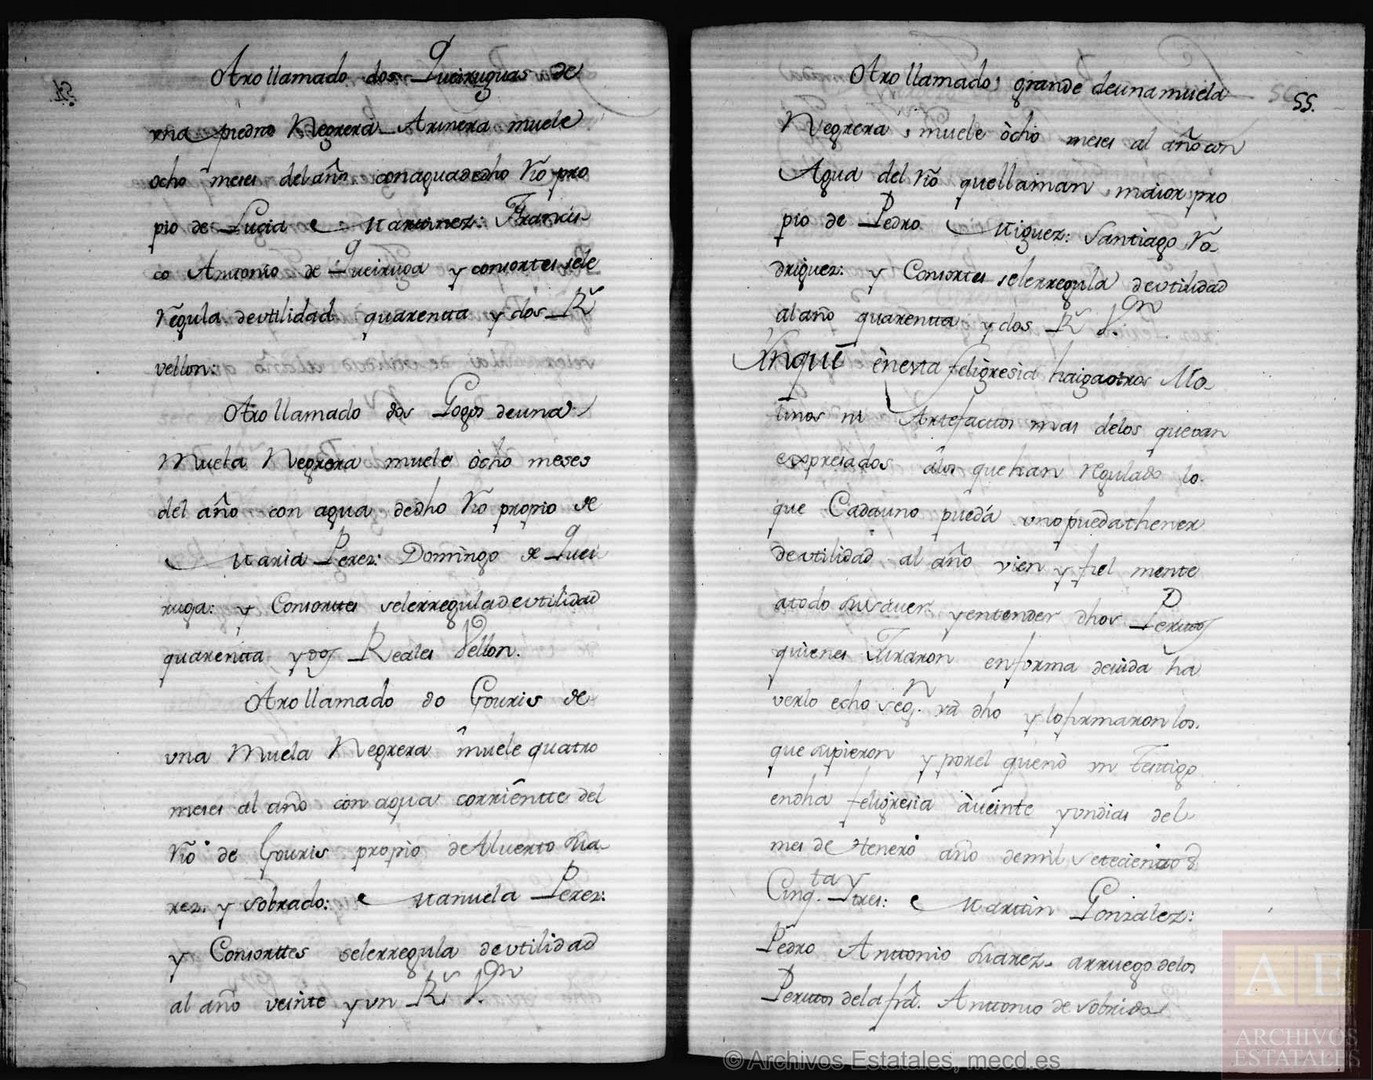 Otro llamado dos Queiruguas de
vna piedra Negrera Arinera muele
ocho meses del año con agua de dho Rio pro
pio de Lucia Martinez: Francis
co Antonio de Queiruga y consortes sele
Regula de vtilidad quarentta y dos Rs
vellon:
Otro llamado dos Gogos de una
Muela Negrera muele ocho meses
del año con agua de dho Rio propio de
Maria Perez: Domingo de Quei
ruga: y Consorttes selerregula de vtilidad
quarentta y dos Reales Vellon.
Otro llamado do Gouris de
vna Muela Negrera muele quatro
meses al año con agua corriente del
Rio de Gouris propio de Alverto Sua
rez. y Sobrado: Manuela Perez:
y Consorttes selerregula de vtilidad
al año veinte y un Rs Von
54
55.
Otro llamado grande de una muela
Negrera, muele ocho meses al año con
Agua del Rio que llaman maior pro
pio de Pedro Miguez: Santiago Ro
driguez: y Consortes selerregula de vtilidad
al año quarentta y dos Rs Von
Sin que en esta feligresia haiga otros Mo
linos ni Artefactos mas de los que van
expresados a los que han regulado lo
que Cada uno pueda vno puedathener
de vtilidad al año vien y fiel mente
a todo su saver y entender dhos Peritos
quienes Juraron en forma devida ha
verlo echo segn va dho y lo firmaron los
que supieron y por el que no vn Testigo
en dha feligresia a veinte y un dias del
mes de Henero año de mil setecientos
Cinqta y tres: Martin Gonzalez:
Pedro Anttonio Suarez, a rruego de los
Peritos de la fra. Anttonio de Sobrido
© Archivos Estatales, mecd.es
AE
ARCHIVOS
ESTATALES